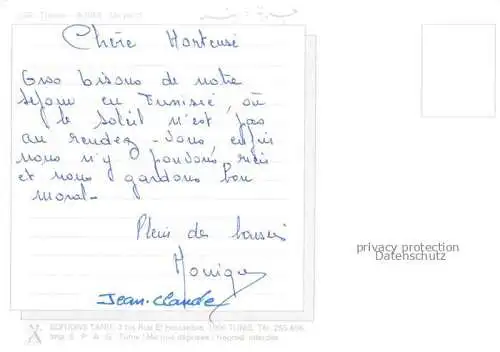 Chère Hortense
Gros bisous de notre
séjour en Tunisie, où
le soleil n'est pas
au rendez-vous, enfin
nous n'y pouvons rien
et nous gardons bon
moral-
Plein de baisers
Monique
Jean-Claude
privacy protection
Datenschutz
EDITIONS TANIT, 3 bis Rue
TUNIS, Tél.